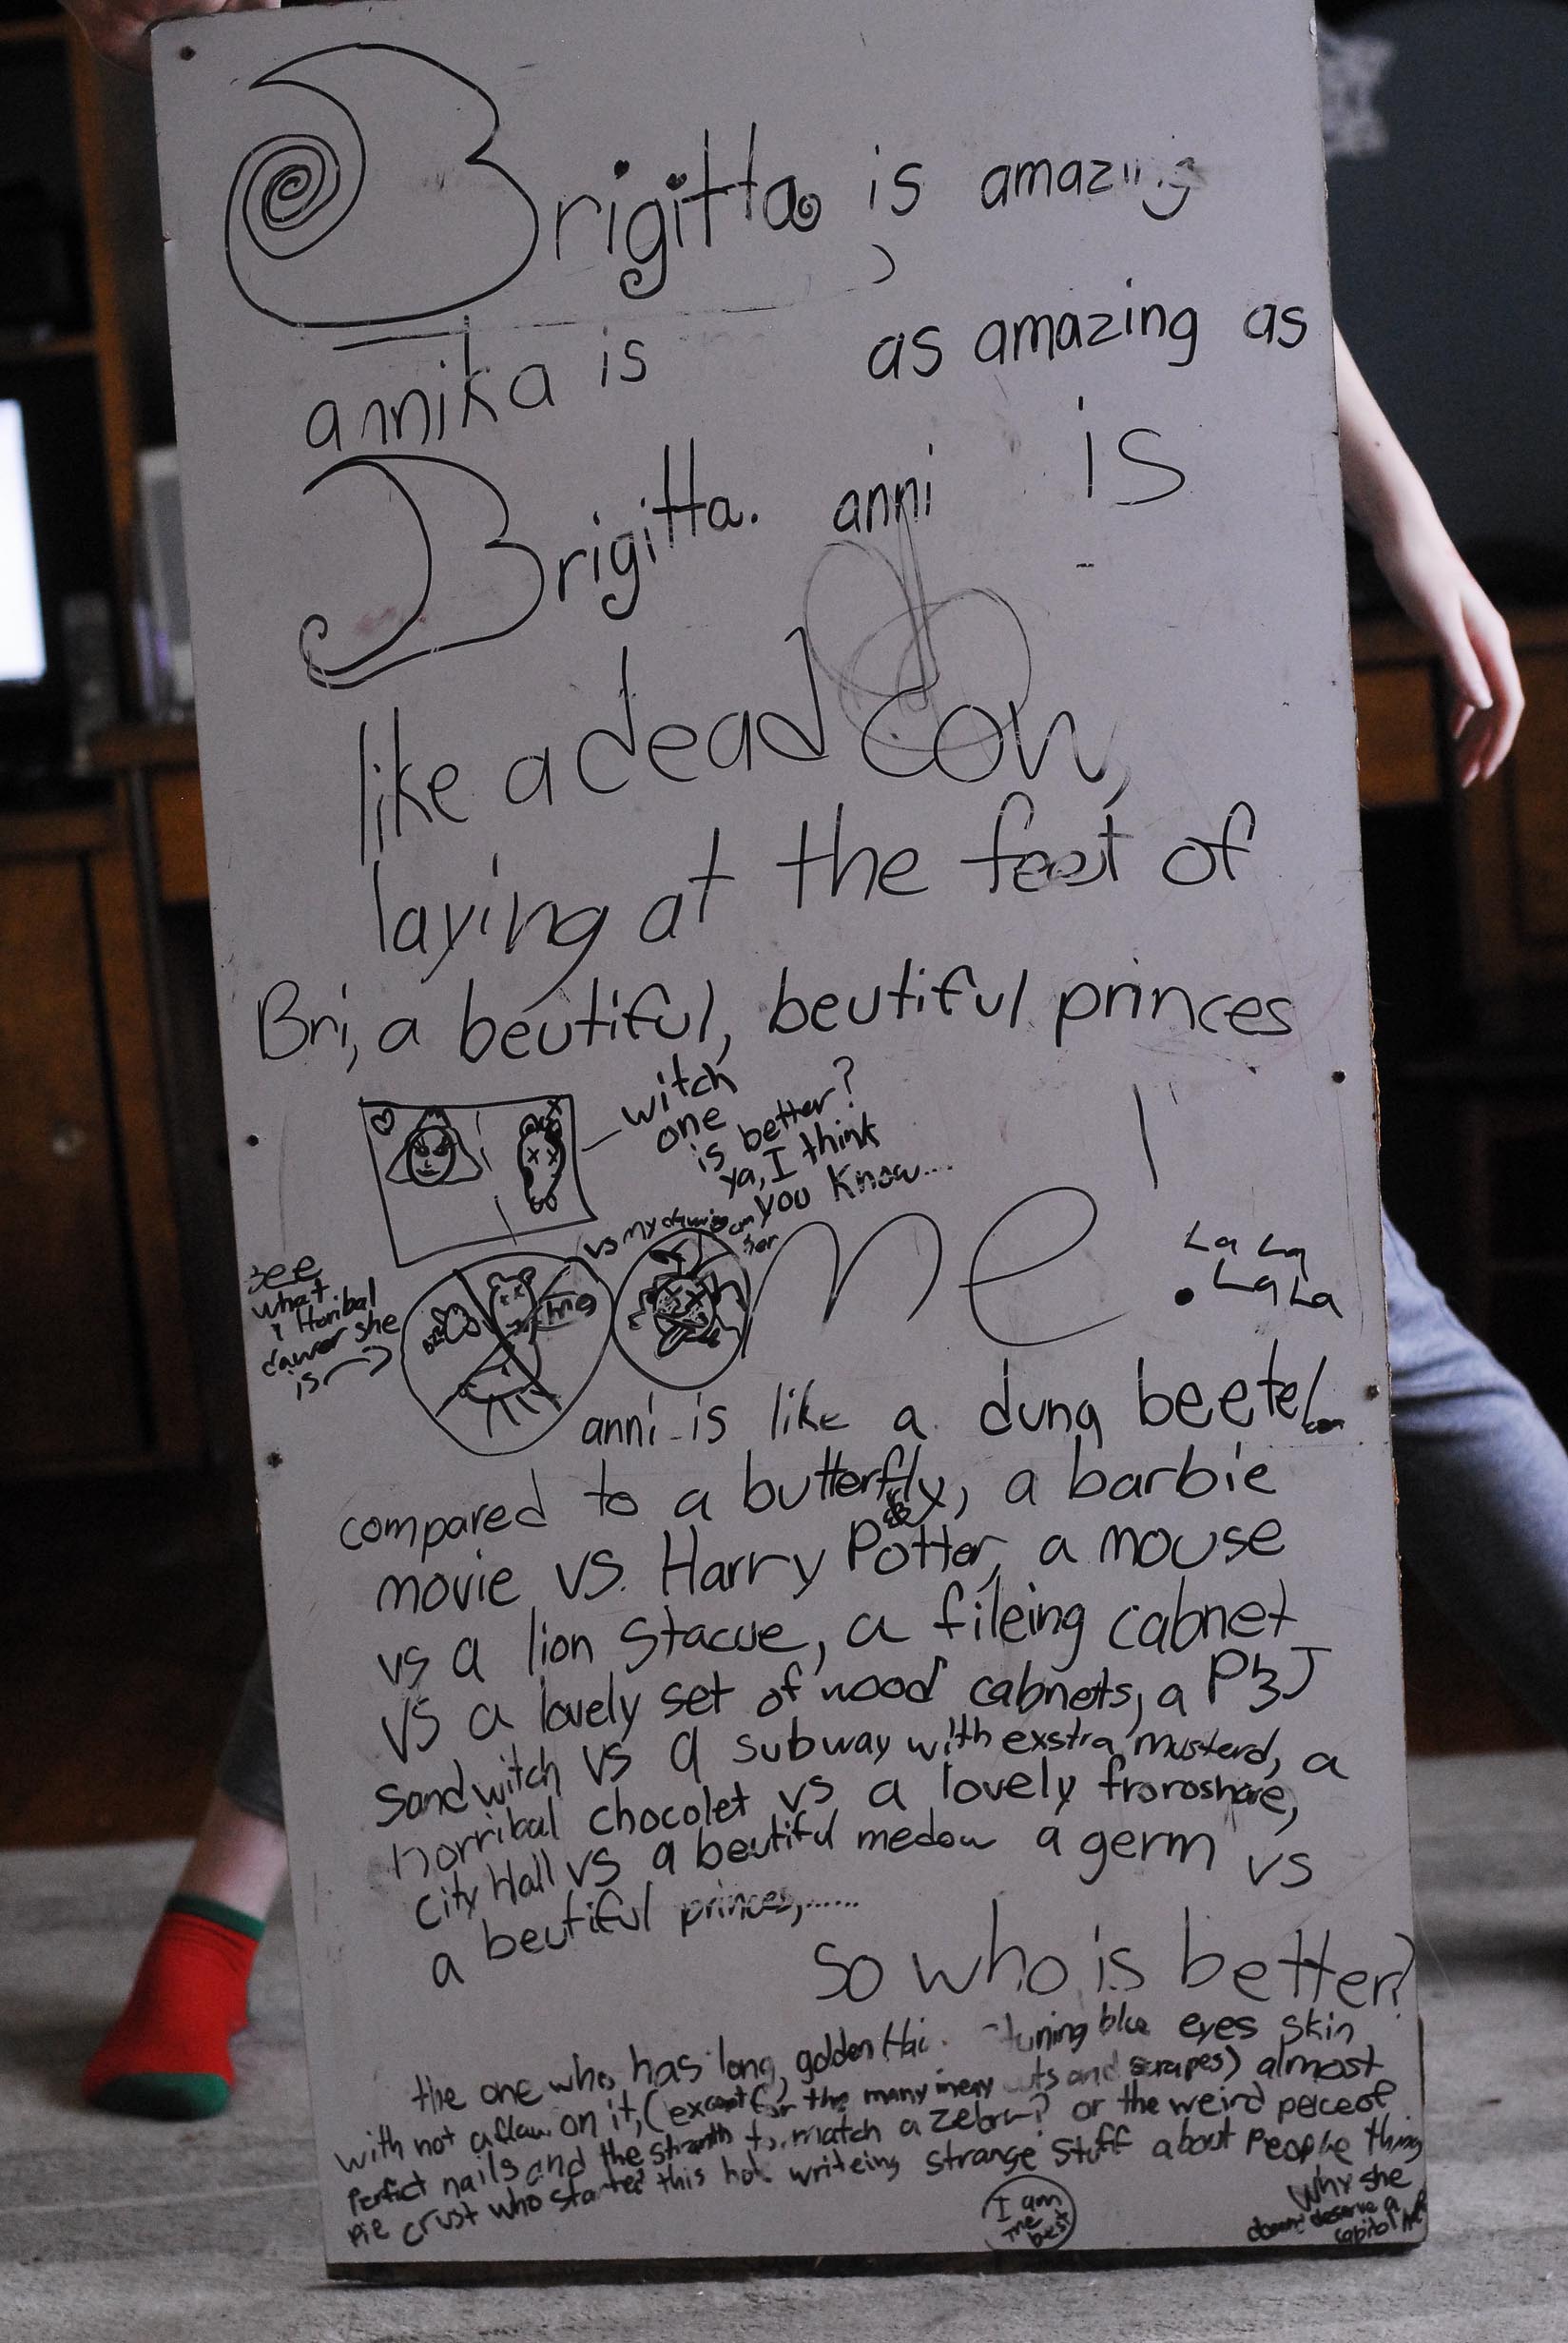 Brigitta is amazing
annika is as amazing as
Brigitta. anni is
like a dead cow,
laying at the feet of
Bri, a beutiful, beutiful princes
witch
one
is better?
ya, I think
you know....
vs my
her
me!
La La
La La
see
what
Horibal
she
is
anni is like a dung beetel
compared to a butterfly, a barbie
movie vs. Harry Potter, a mouse
vs a lion stacue, a fileing cabnet
vs a lovely set of wood cabnets, a PBJ
Sandwitch vs a subway with exstra musterd, a
horribal chocolet vs a lovely
city Hall vs a beutiful medow a germ vs
a beutiful princes,......
so who is better?
the one who has long, golden blue eyes skin
with not a flaw on it, (except for the many and scrapes) almost
perfict nails and the to match a zebra? or the weird peice of
pie crust who started this writeing strange stuff about People
why she
deserve a
capitol
I am
the
best